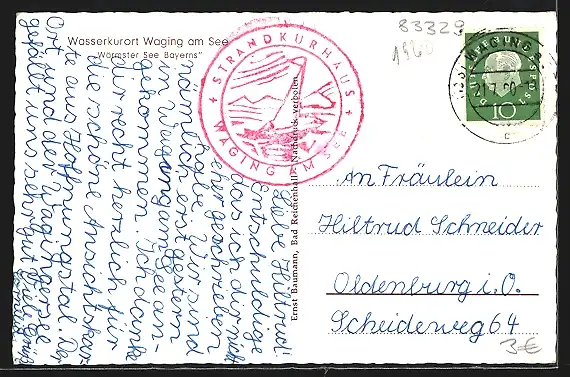 Wasserkurort Waging am See
"Wärmster See Bayerns"
83329
1960
STRANDKURHAUS
WAGING AM SEE
WAGING
21.7.60
DEUTSCHE BUNDESPOST
10
Ernst Baumann, Bad Reichenhall Nachdruck verboten
Liebe Hiltrud!
Entschuldige
das ich dir nicht
eher geschrieben
habe. Wir sind
nämlich erst gestern
in Waging am See an-
gekommen. Ich danke
dir recht herzlich für
die schöne Ansichtskar-
te aus Hoffnungstal. Der
Ort und der Wagingersee
gefällt uns sehr gut. Viele Grüße
An Fräulein
Hiltrud Schneider
Oldenburg i. O.
Scheideweg 64
3€